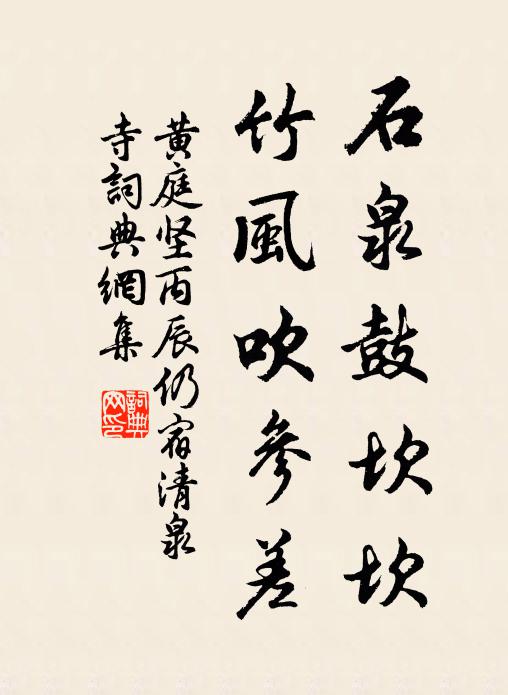 石泉鼓坎坎
竹風吹參差
黃庭坚丙辰仍宿清泉
寺詞典網集
詞典网印